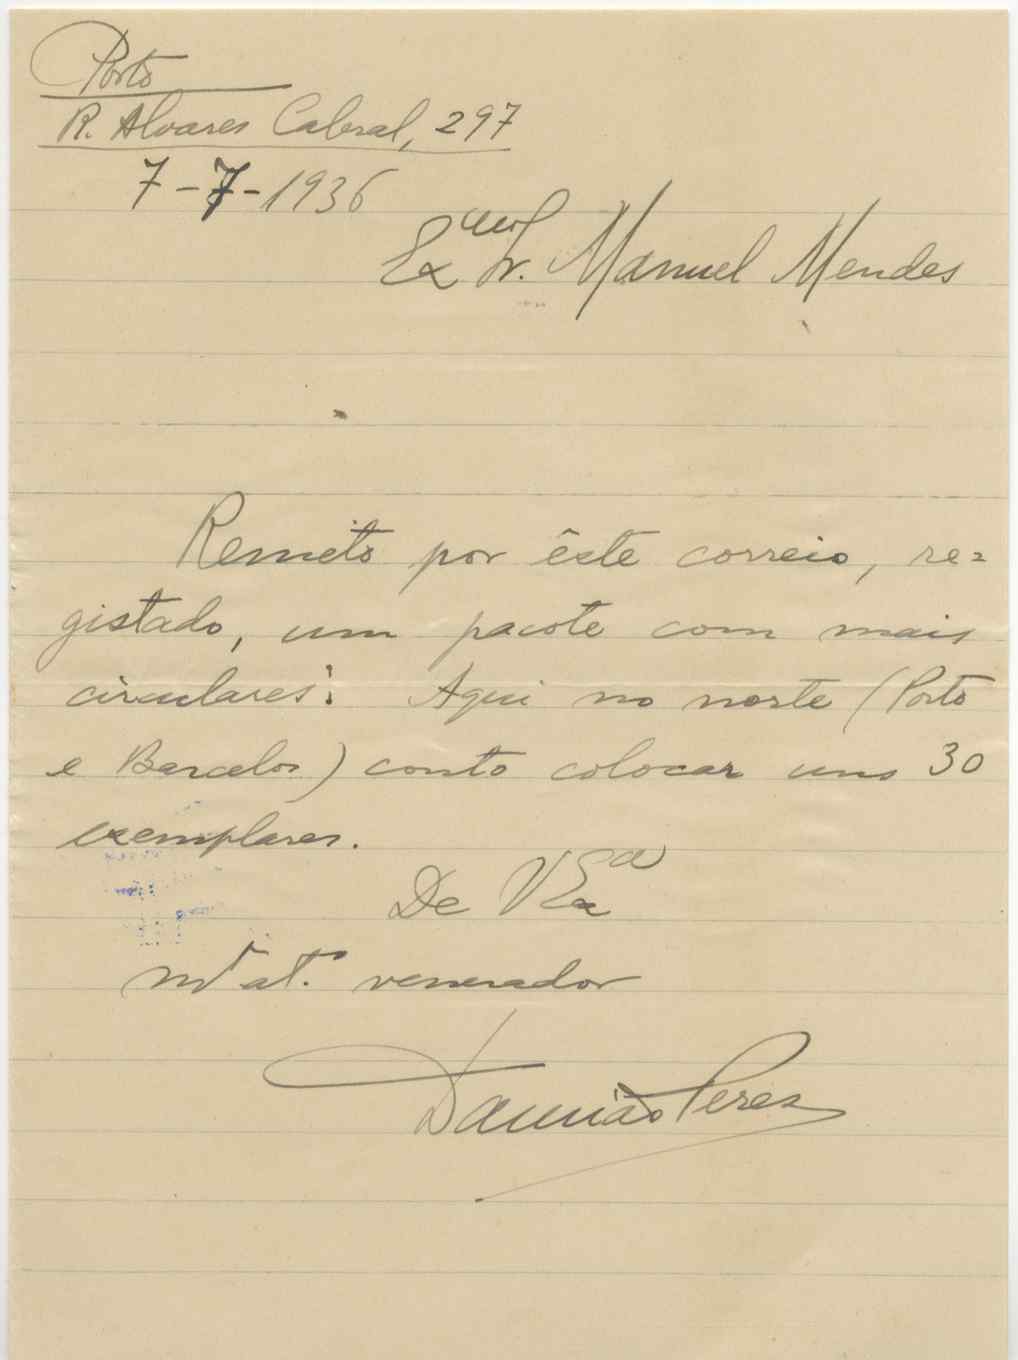 Porto
R. Alvares Cabral, 297
7-7-1936
Exmo Sr. Manuel Mendes
Remeto por êste correio, re=
gistado, um pacote com mais
circulares. Aqui no norte (Porto
e Barcelos) conto colocar uns 30
exemplares.
De V Exa
mto atº venerador
Damião Peres